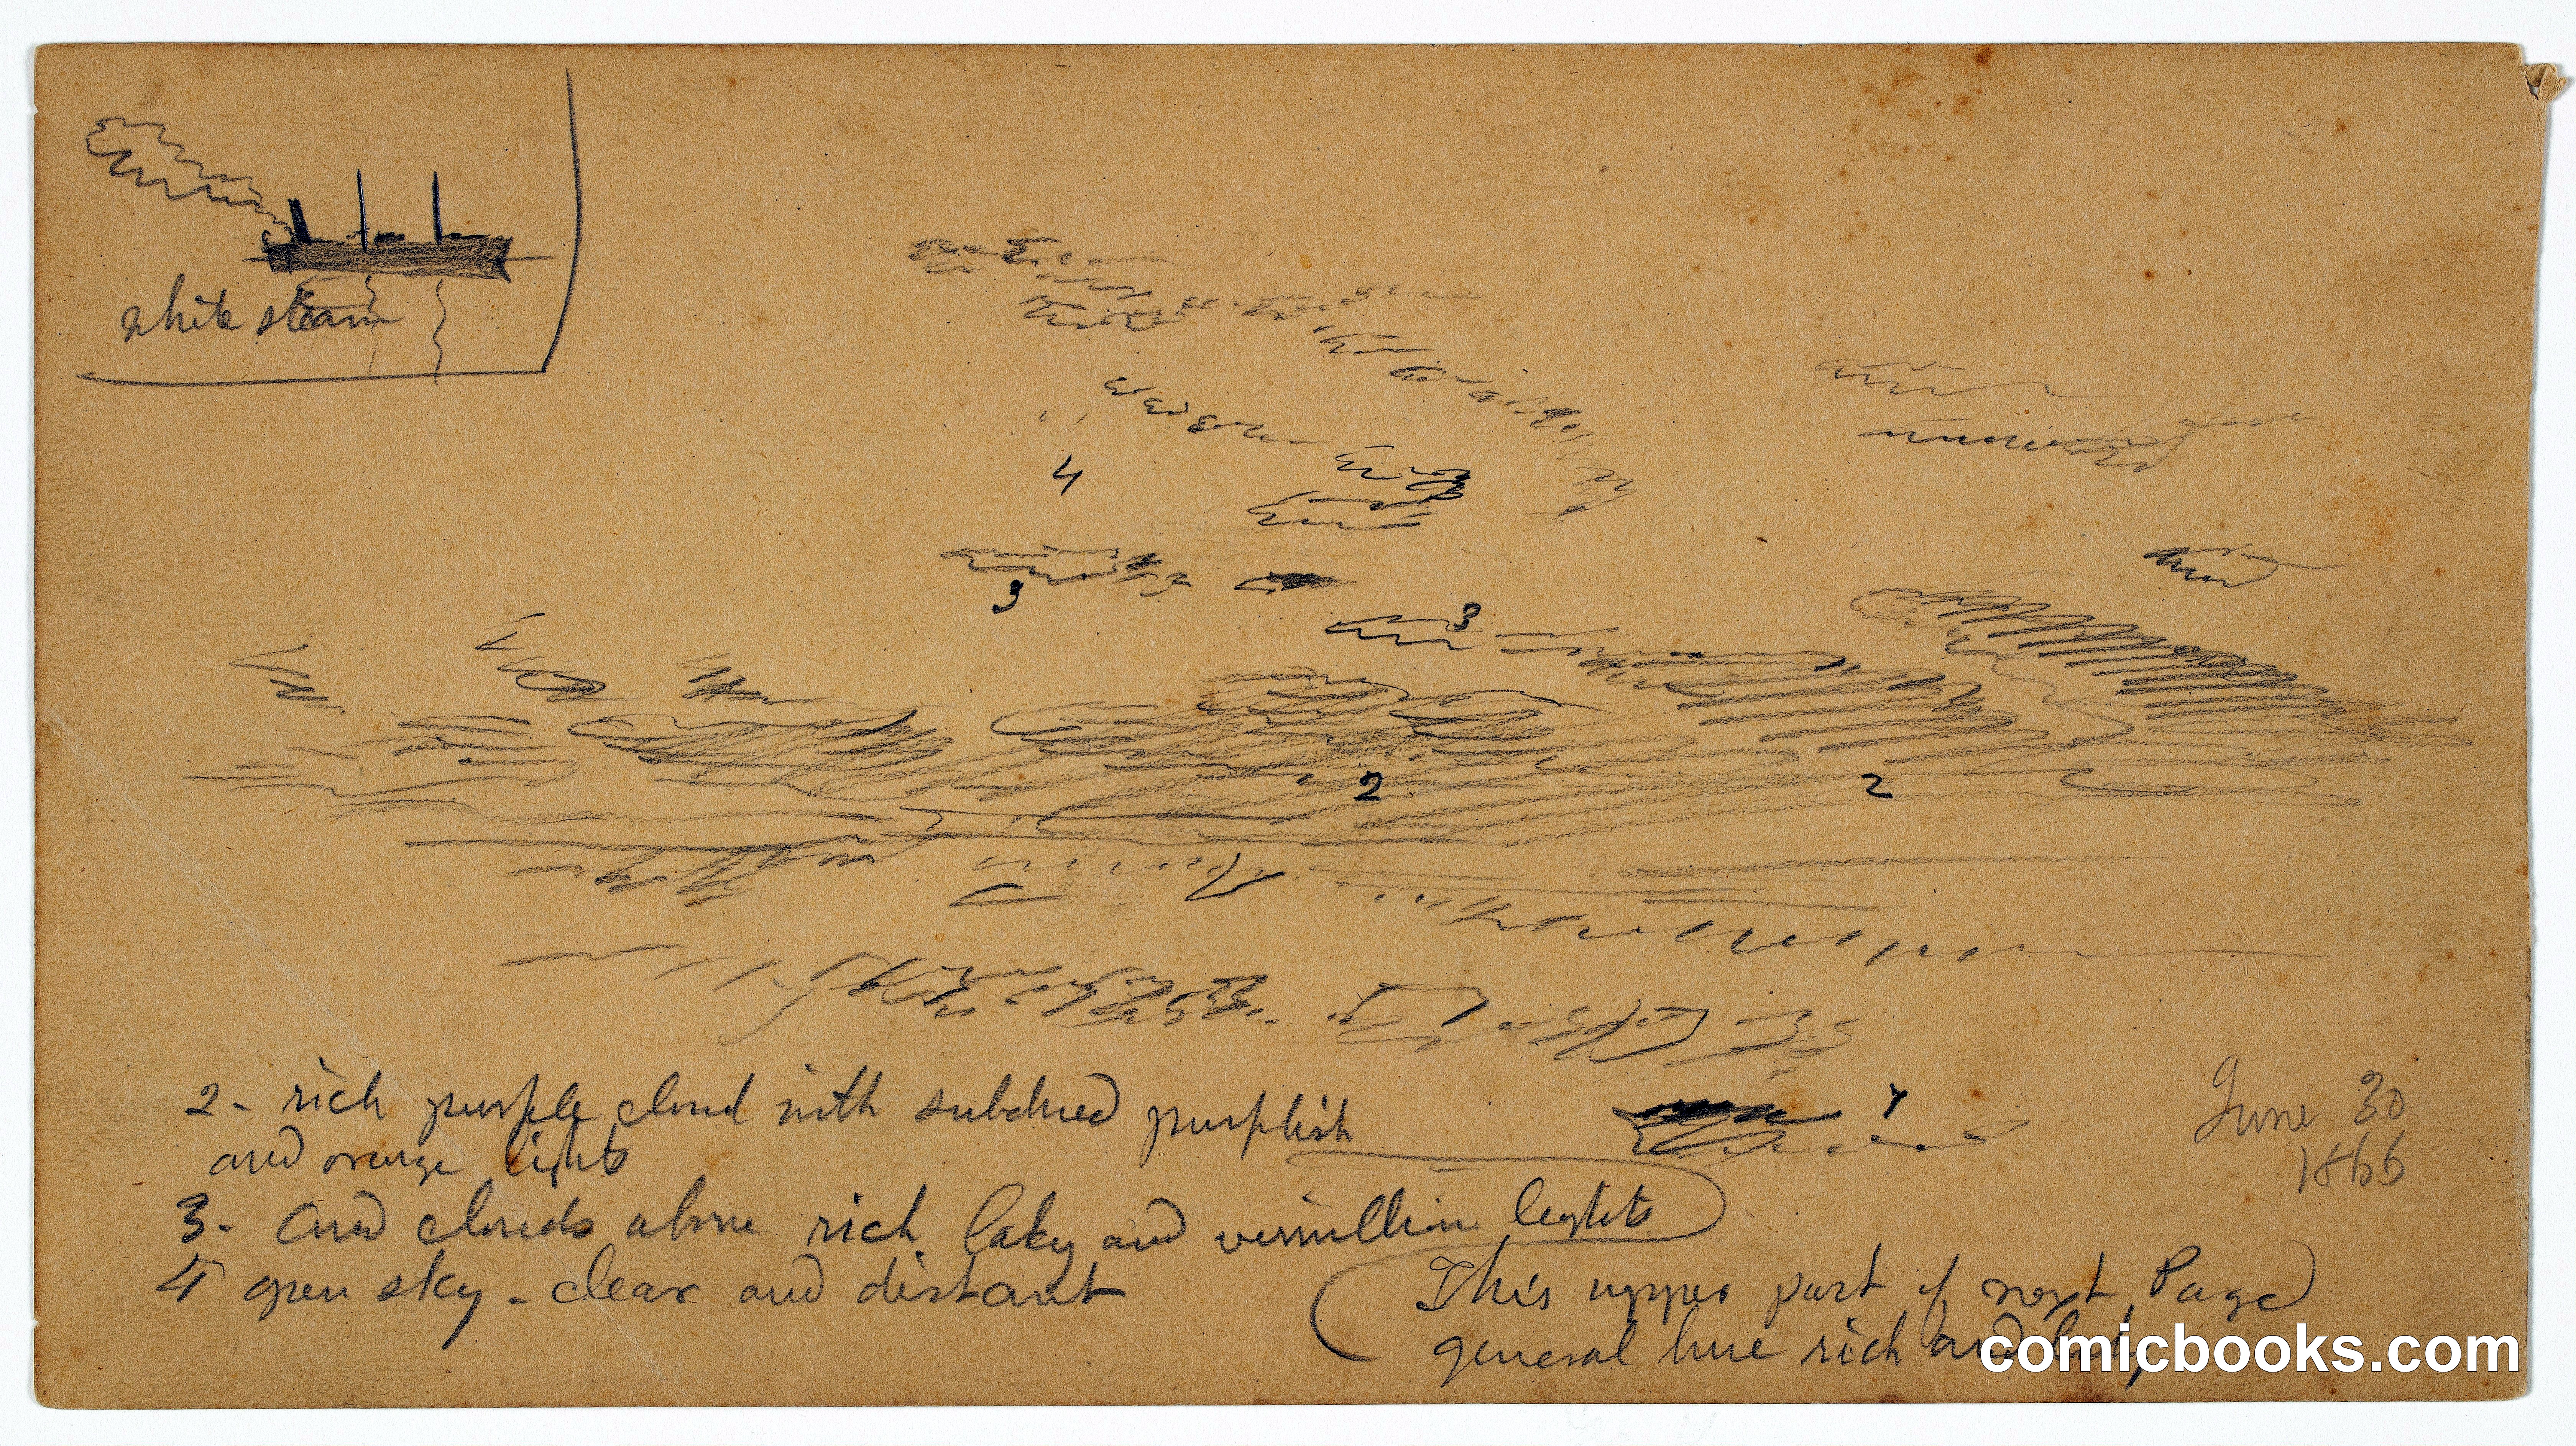 white steam
4
3
3
2
2
4
2 - rich purple cloud with subdued purplish
and orange lights
3 - and clouds above rich laky and vermillion lights
4 open sky - clear and distant
June 30
1866
This upper part of next Page
general hue rich and
comicbooks.com